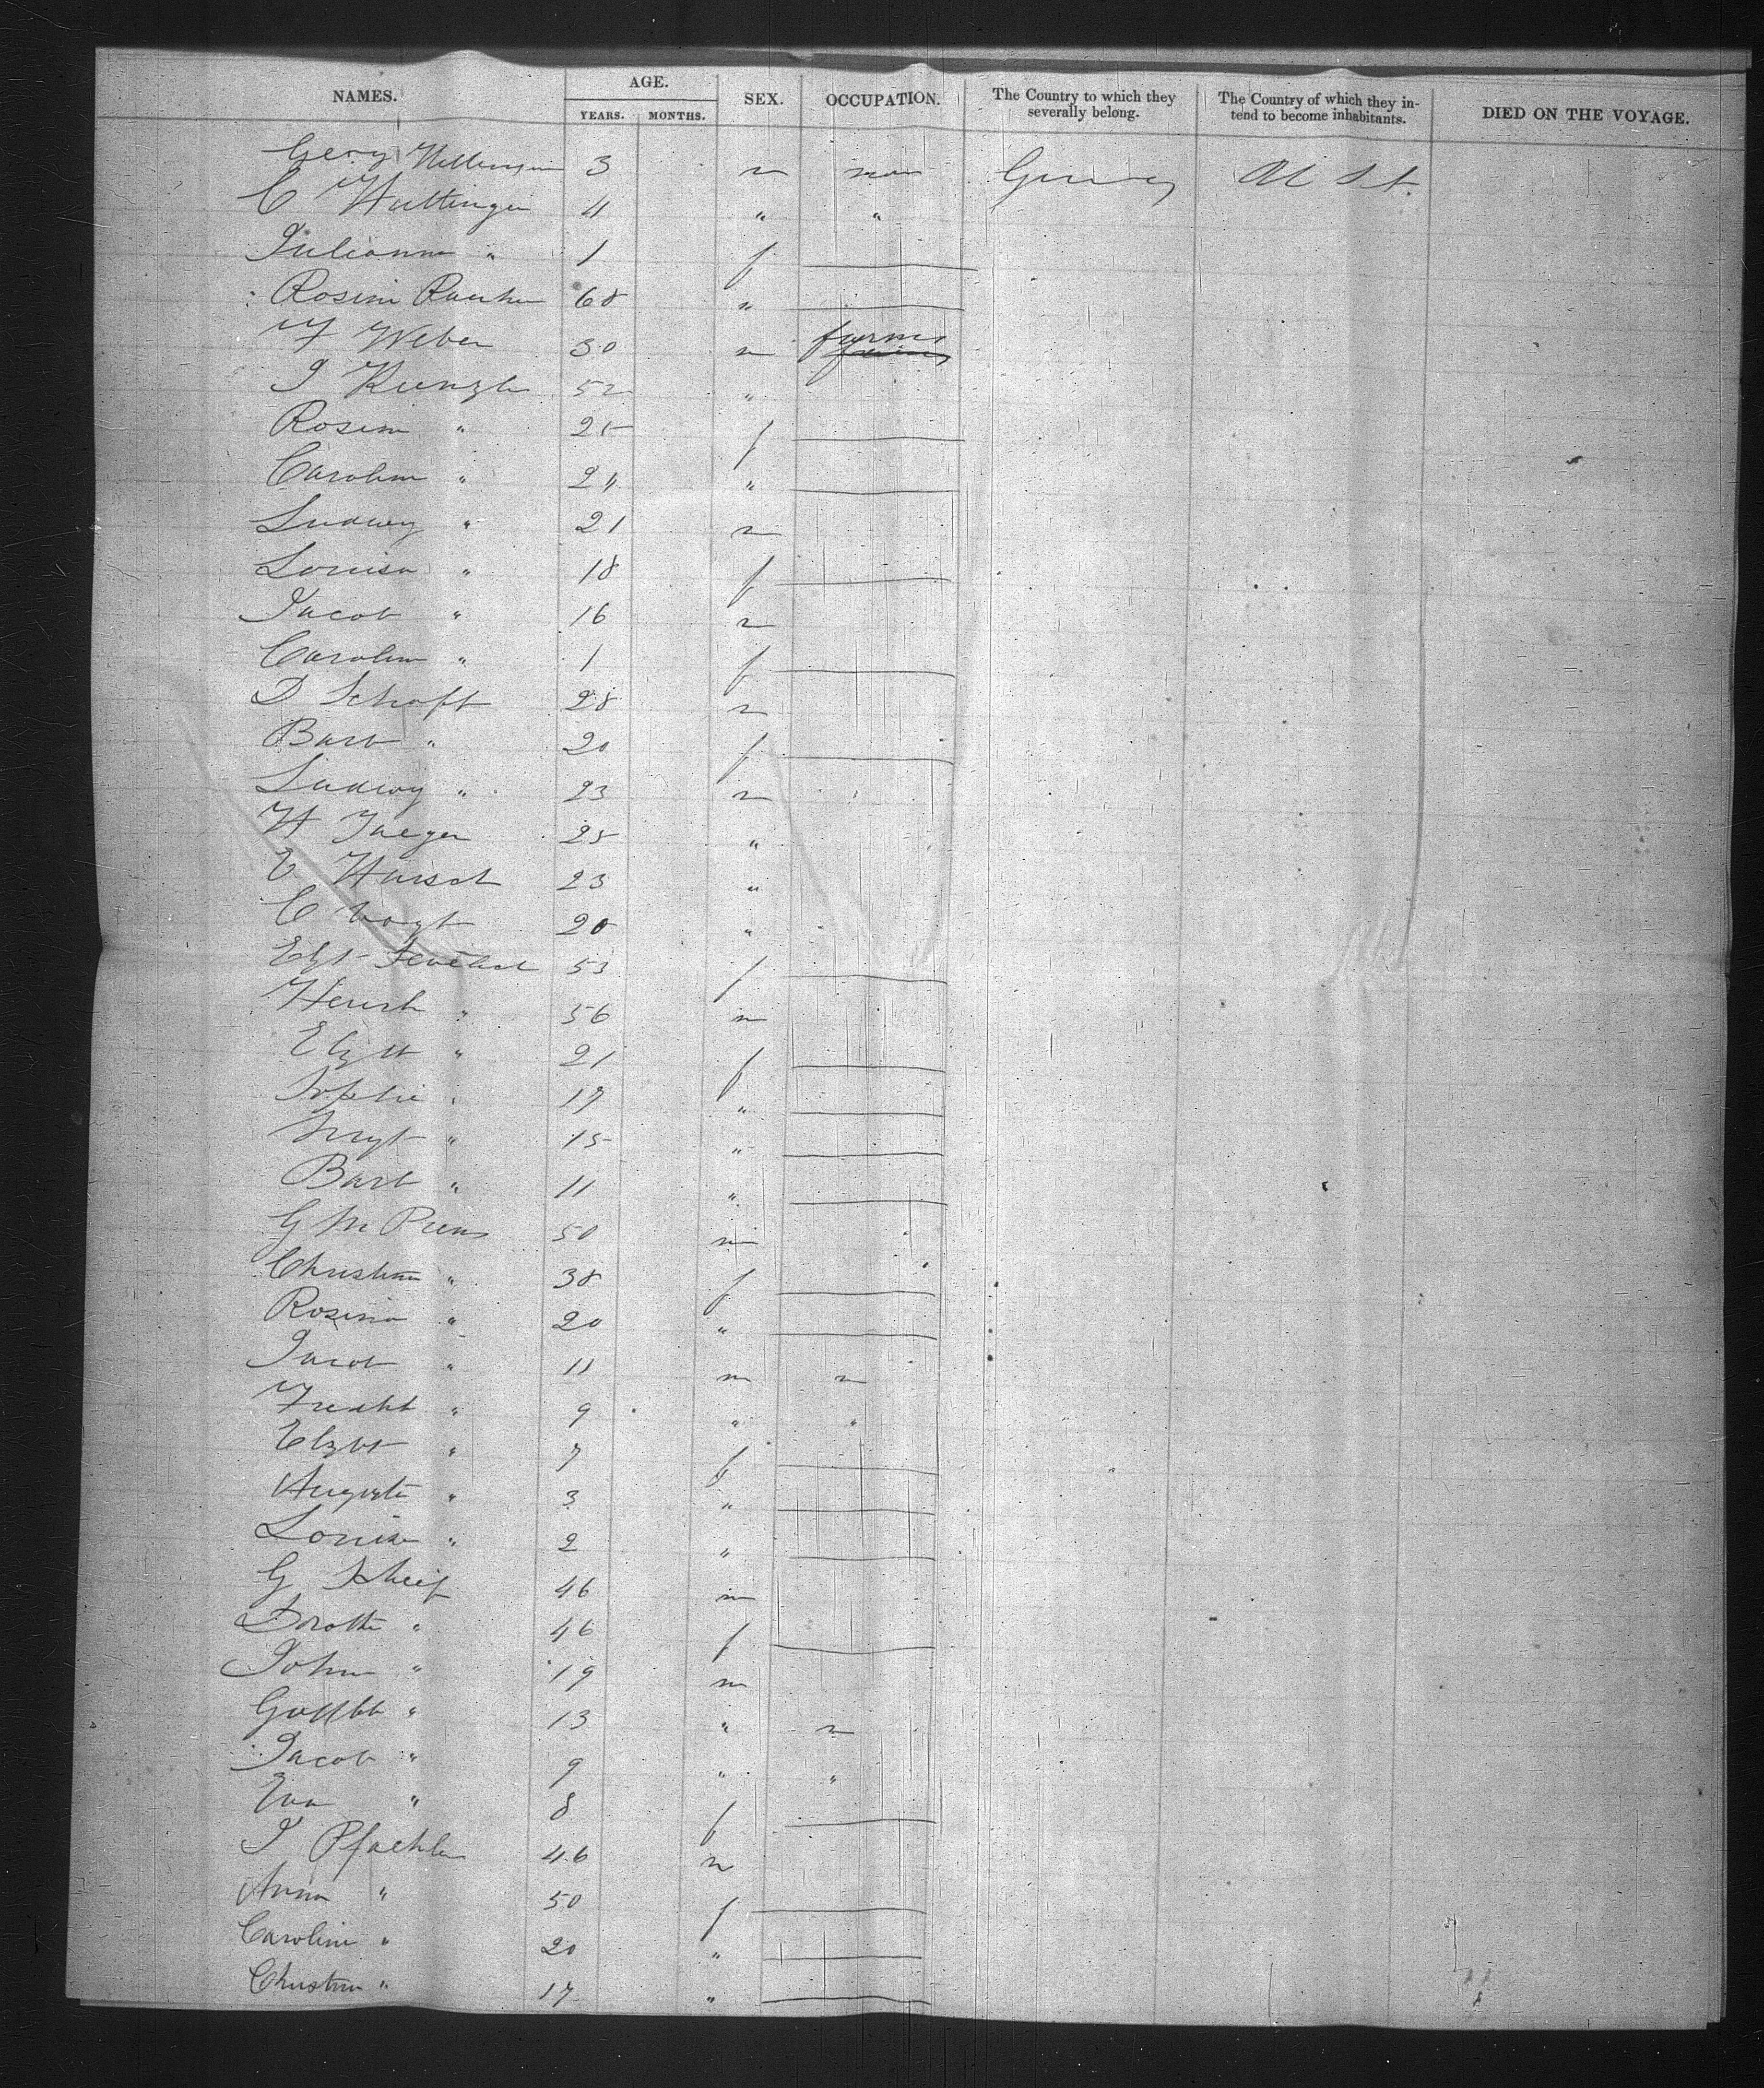 NAMES. AGE. SEX. OCCUPATION. The Country to which they severally belong. The Country of which they intend to become inhabitants. DIED ON THE VOYAGE.
YEARS. MONTHS.
Georg 3 m non Germy U St.
C Hattinger 4 " "
Julianna " 1 f
Rosine 68 "
F Weber 30 m farmer
J Kunzle 52 "
Rosine " 25 f
Caroline " 24 "
Ludwig " 21 m
Louisa " 18 f
Jacob " 16 m
Carolin " 1 f
D Schaft 28 m
Barb " 20 f
Ludwig " 23 m
H Jaeger 25 "
E Hirsch 23 "
C Vogt 20 "
Elzt 53 f
Heinrh " 56 m
Elzbt " 21 f
Sophie " 17 "
Margt " 15 "
Barb " 11 "
G M 50 m
Christina " 38 f
Rosina " 20 "
Jacob " 11 m n
Fredkh " 9 " "
Elzbt " 7 f
Auguste " 3 "
Louise " 2 "
G 46 m
Dorothe " 46 f
Johan " 19 m
Gottlbb " 13 " n
Jacob " 9 " "
Eva " 8 f
J Pfaehler 46 m
Anna " 50 f
Caroline " 20 "
Christine " 17 "